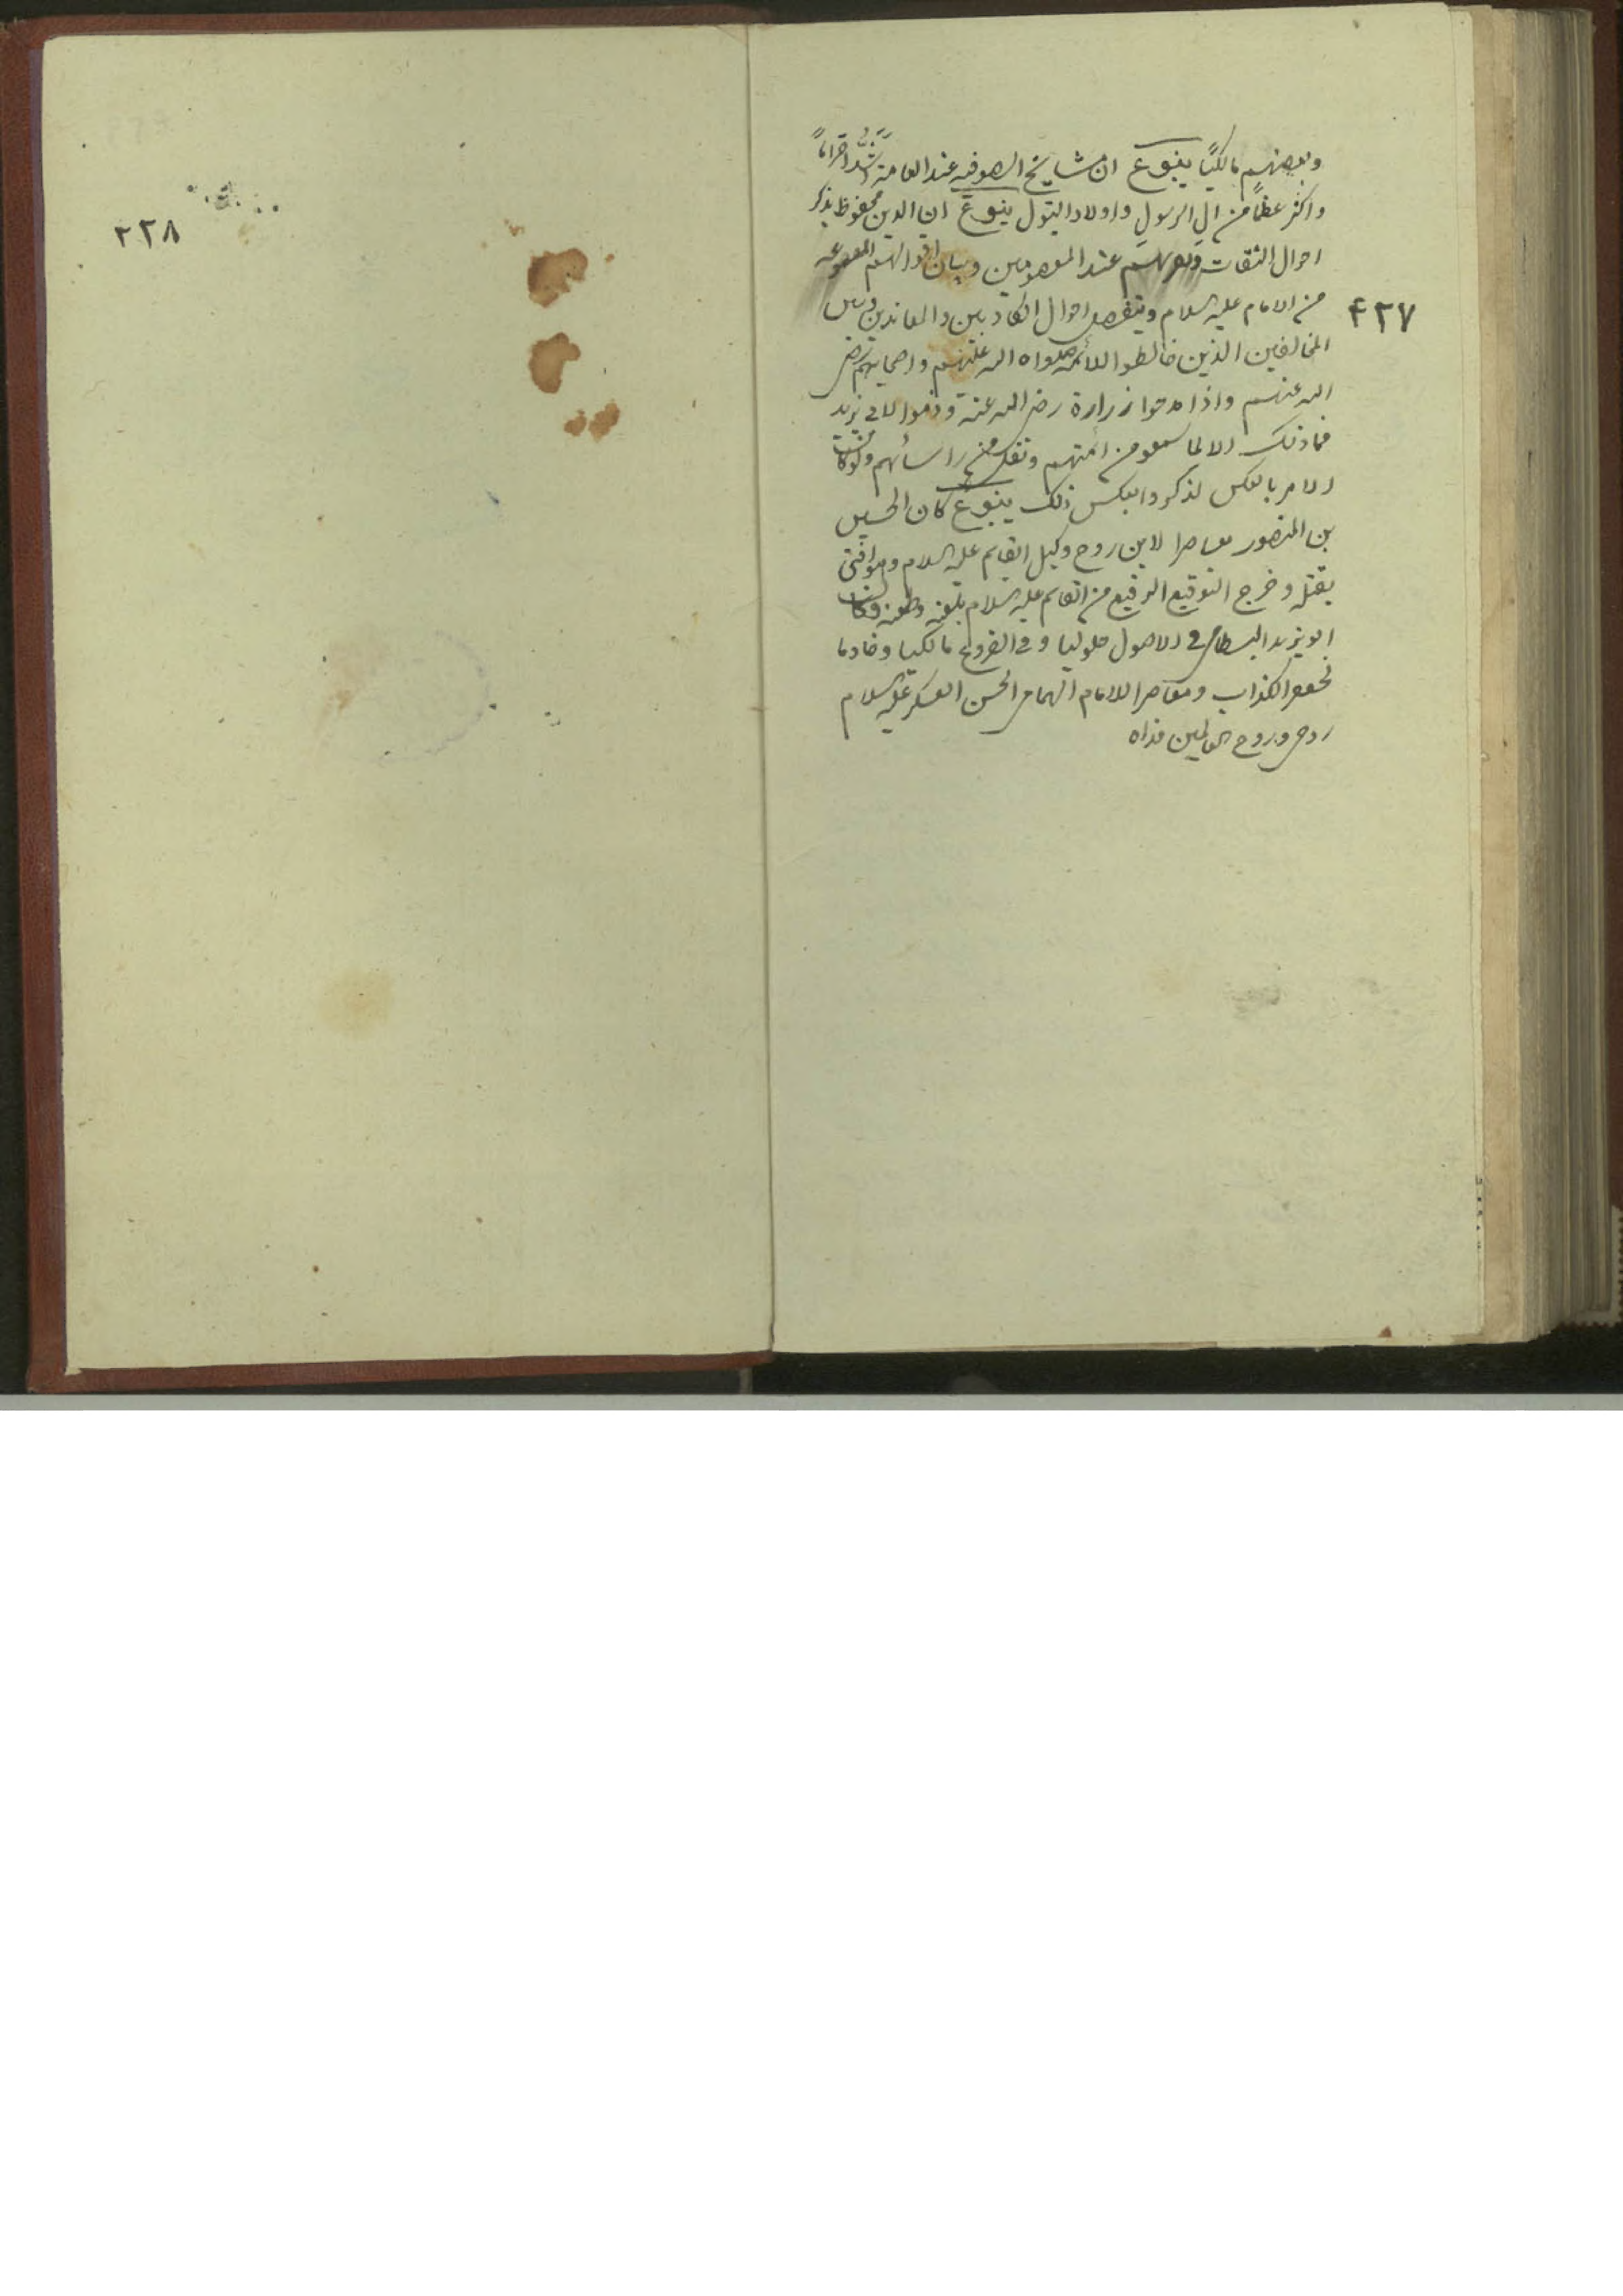 وبعضهم مالكيًا ينبوع ان مشايخ الصوفيه عند العامة اشد احترامًا
واكثر عظمًا من ال الرسول واولاد البتول ينبوع ان الدين محفوظ بذكر
احوال الثقات وقربهم عند المعصومين وبيان اقوالهم المسموعه
من الامام عليه السلام وبتفصيل احوال الكاذبين والمعاندين وبيان
المخالفين الذين خالطوا الائمه صلواة الله عليهم واصحابهم رضي
الله عنهم واذا مدحوا زرارة رضي الله عنه وذموا لابي يزيد
فما ذلك الا لما سمعو من ائمتهم ونقل من رؤسائهم ولو كانت
الامر بالعكس لذكروا بعكس ذلك ينبوع كان الحسين
بن المنصور معاصرا لابن روح وكيل القايم عليه السلام وهو افتى
بقتله وخرج التوقيع الرفيع من القايم عليه السلام بلعنه وطعنه وكانت
ابو يزيد البسطامي في الاصول حلوليا وفي الفروع مالكيا وخادما
لجعفر الكذاب ومعاصرا للامام الهمام الحسن العسكري عليه السلام
روحي وروح العالمين فداه
۴۲۷
۴۲۸